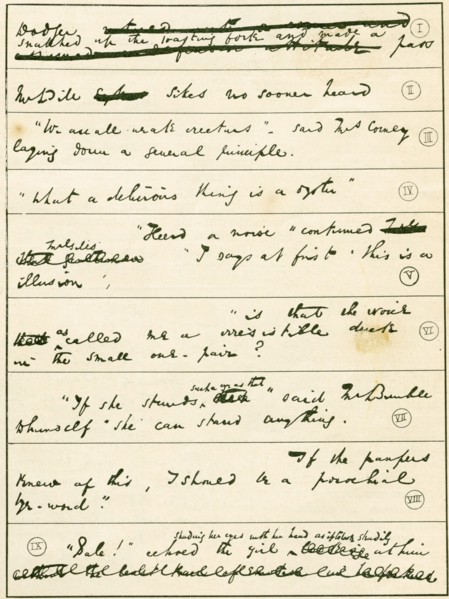 Dodger I
snatched up the toasting fork and made a
pass
Sikes no sooner heard II
"We are all weak creeturs" - said Mrs Corney III
laying down a general principle.
"What a delicious thing is a oyster" IV
"Heerd a noise" continued
Mr Giles
"I says at first 'This is a
illusion', V
"is that the voice
as called me a irresistible duck VI
in the small one-pair?
such a eye as that
"If she stands" said Mr Bumble
to himself "she can stand anything. VII
If the paupers
knew of this, I should be a parochial
bye-word." VIII
shading her eyes with her hand as if to look steadily
IX "Pale!" echoed the girl at him